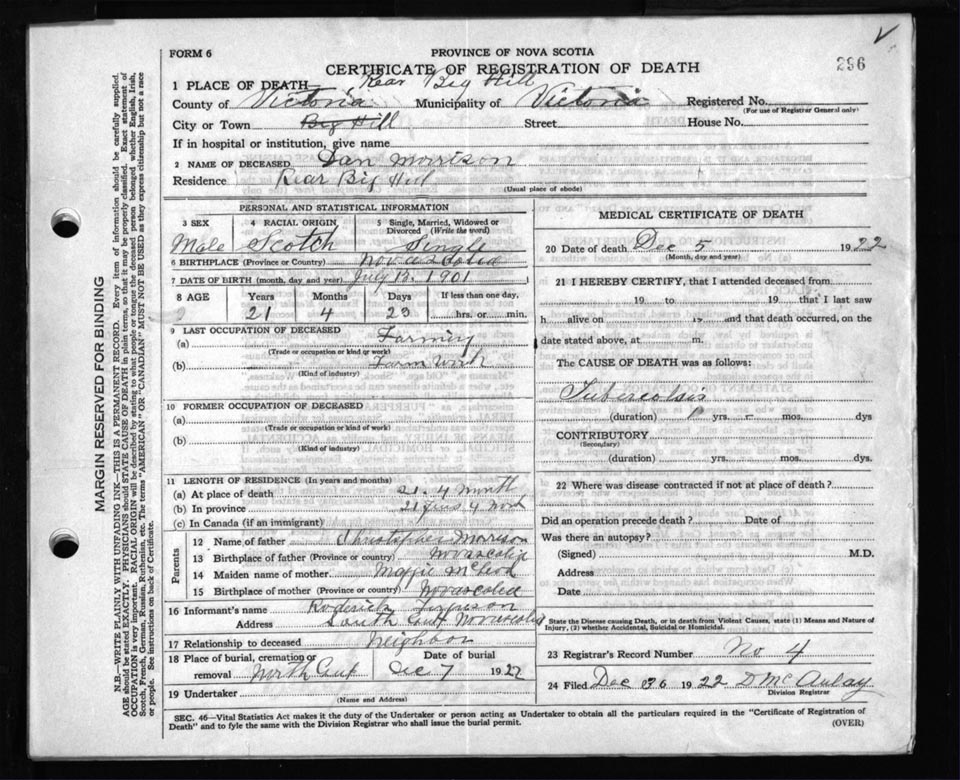 FORM 6
PROVINCE OF NOVA SCOTIA
296
CERTIFICATE OF REGISTRATION OF DEATH
1 PLACE OF DEATH Rear Big Hill
County of Victoria Municipality of Victoria Registered No.
(For use of Registrar General only)
City or Town Big Hill Street House No.
If in hospital or institution, give name
2 NAME OF DECEASED Dan Morrison
Residence Rear Big Hill
(Usual place of abode)
PERSONAL AND STATISTICAL INFORMATION
3 SEX 4 RACIAL ORIGIN 5 Single, Married, Widowed or Divorced (Write the word)
Male Scotch Single
6 BIRTHPLACE (Province or Country) Nova Scotia
7 DATE OF BIRTH (month, day and year) July 12. 1901
8 AGE Years Months Days If less than one day,
21 4 23 hrs. or min.
9 LAST OCCUPATION OF DECEASED
(a) Farming
(Trade or occupation or kind or work)
(b) Farm Work
(Kind of industry)
10 FORMER OCCUPATION OF DECEASED
(a)
(Trade or occupation or kind of work)
(b)
(Kind of industry)
11 LENGTH OF RESIDENCE (In years and months)
(a) At place of death 21. 4 month
(b) In province 21 4
(c) In Canada (if an immigrant)
Parents
12 Name of father Christopher Morrison
13 Birthplace of father (Province or country) Novascotia
14 Maiden name of mother McLeod
15 Birthplace of mother (Province or country) Novascotia
16 Informant's name Roderick
Address South Gut Novascotia
17 Relationship to deceased Neighbor
18 Place of burial, cremation or removal Date of burial
North Gut Dec 7 1922
19 Undertaker
(Name and Address)
MEDICAL CERTIFICATE OF DEATH
20 Date of death Dec 5 1922
(Month, day and year)
21 I HEREBY CERTIFY, that I attended deceased from
19 to 19 that I last saw
h alive on 19 and that death occurred, on
date stated above, at m.
The CAUSE OF DEATH was as follows:
Tubercolsis
(duration) yrs. mos. dys
CONTRIBUTORY
(Secondary)
(duration) yrs. mos. dys.
22 Where was disease contracted if not at place of death?
Did an operation precede death? Date of
Was there an autopsy?
(Signed) M.D.
Address
Date
State the Disease causing Death, or in death from Violent Causes, state (1) Means and Nature of
Injury, (2) whether Accidental, Suicidal or Homicidal.
23 Registrar's Record Number No 4
24 Filed Dec 1922 D McAulay
Division Registrar
SEC. 46—Vital Statistics Act makes it the duty of the Undertaker or person acting as Undertaker to obtain all the particulars required in the "Certificate of Registration of
Death" and to fyle the same with the Division Registrar who shall issue the burial permit.
(OVER)
MARGIN RESERVED FOR BINDING
N.B.—WRITE PLAINLY WITH UNFADING INK—THIS IS A PERMANENT RECORD. Every item of information should be carefully supplied.
AGE should be stated EXACTLY. PHYSICIANS should STATE CAUSE OF DEATH in plain terms, so that it may be properly classified. Exact statement of
OCCUPATION is very important. RACIAL ORIGIN will be described by stating to what people or tongue the deceased person belonged whether English, Irish,
Scotch, French, German, Russian, Ruthenian, etc. The terms "AMERICAN" OR "CANADIAN" MUST NOT BE USED as they express citizenship but not a race
or people. See instructions on back of Certificate.